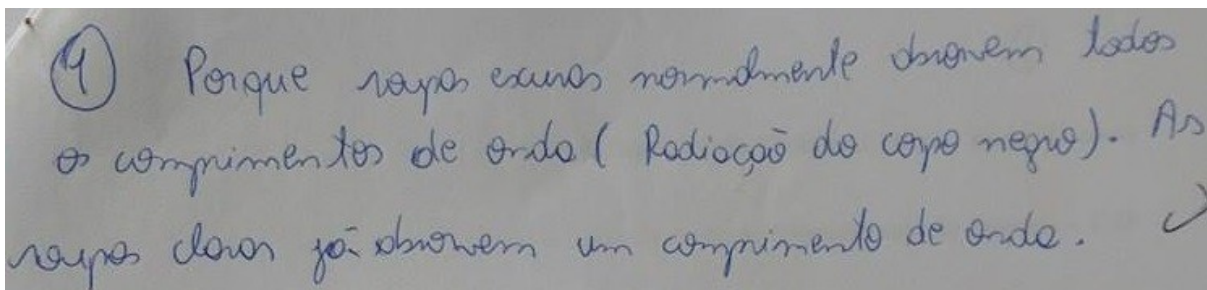 1 Porque roupas escuras normalmente absorvem todos
os comprimentos de onda ( Radiação do corpo negro). As
roupas claras já absorvem um comprimento de onda.